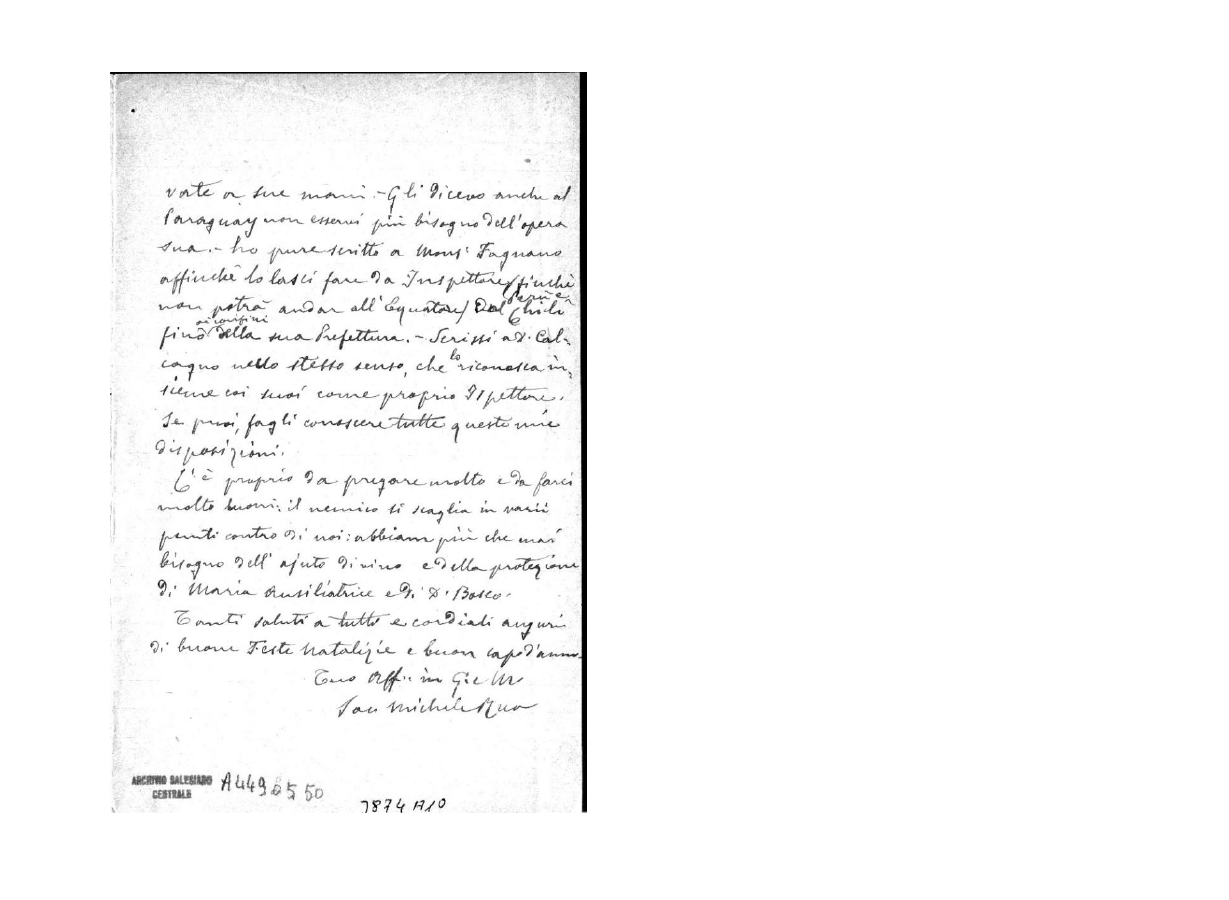 vate a sue mani. - Gli dicevo anche al
Paraguay non esservi più bisogno dell'opera
sua. - ho pure scritto a Mons. Fagnano
affinchè lo lasci fare da Inspettore (finchè
non potrà andar all'Equatore) del Perù e Chilì
fino ai confini della sua Prefettura. - Scrissi a D. Cal-
cagno nello stesso senso, che lo riconosca in-
sieme coi suoi come proprio Ispettore.
Se puoi, fagli conoscere tutte queste mie
disposizioni.
C'è proprio da pregare molto e da farci
molto buoni: il nemico si scaglia in varii
punti contro di noi: abbiam più che mai
bisogno dell'ajuto divino e della protezione
di Maria Ausiliatrice e di D. Bosco.
Tanti saluti a tutti e cordiali auguri
di buone Feste Natalizie e buon capo d'anno.
Tuo Aff. in G. e M.
Sac Michele Rua
ARCHIVIO SALESIANO
CENTRALE
A4490550
3874 A10